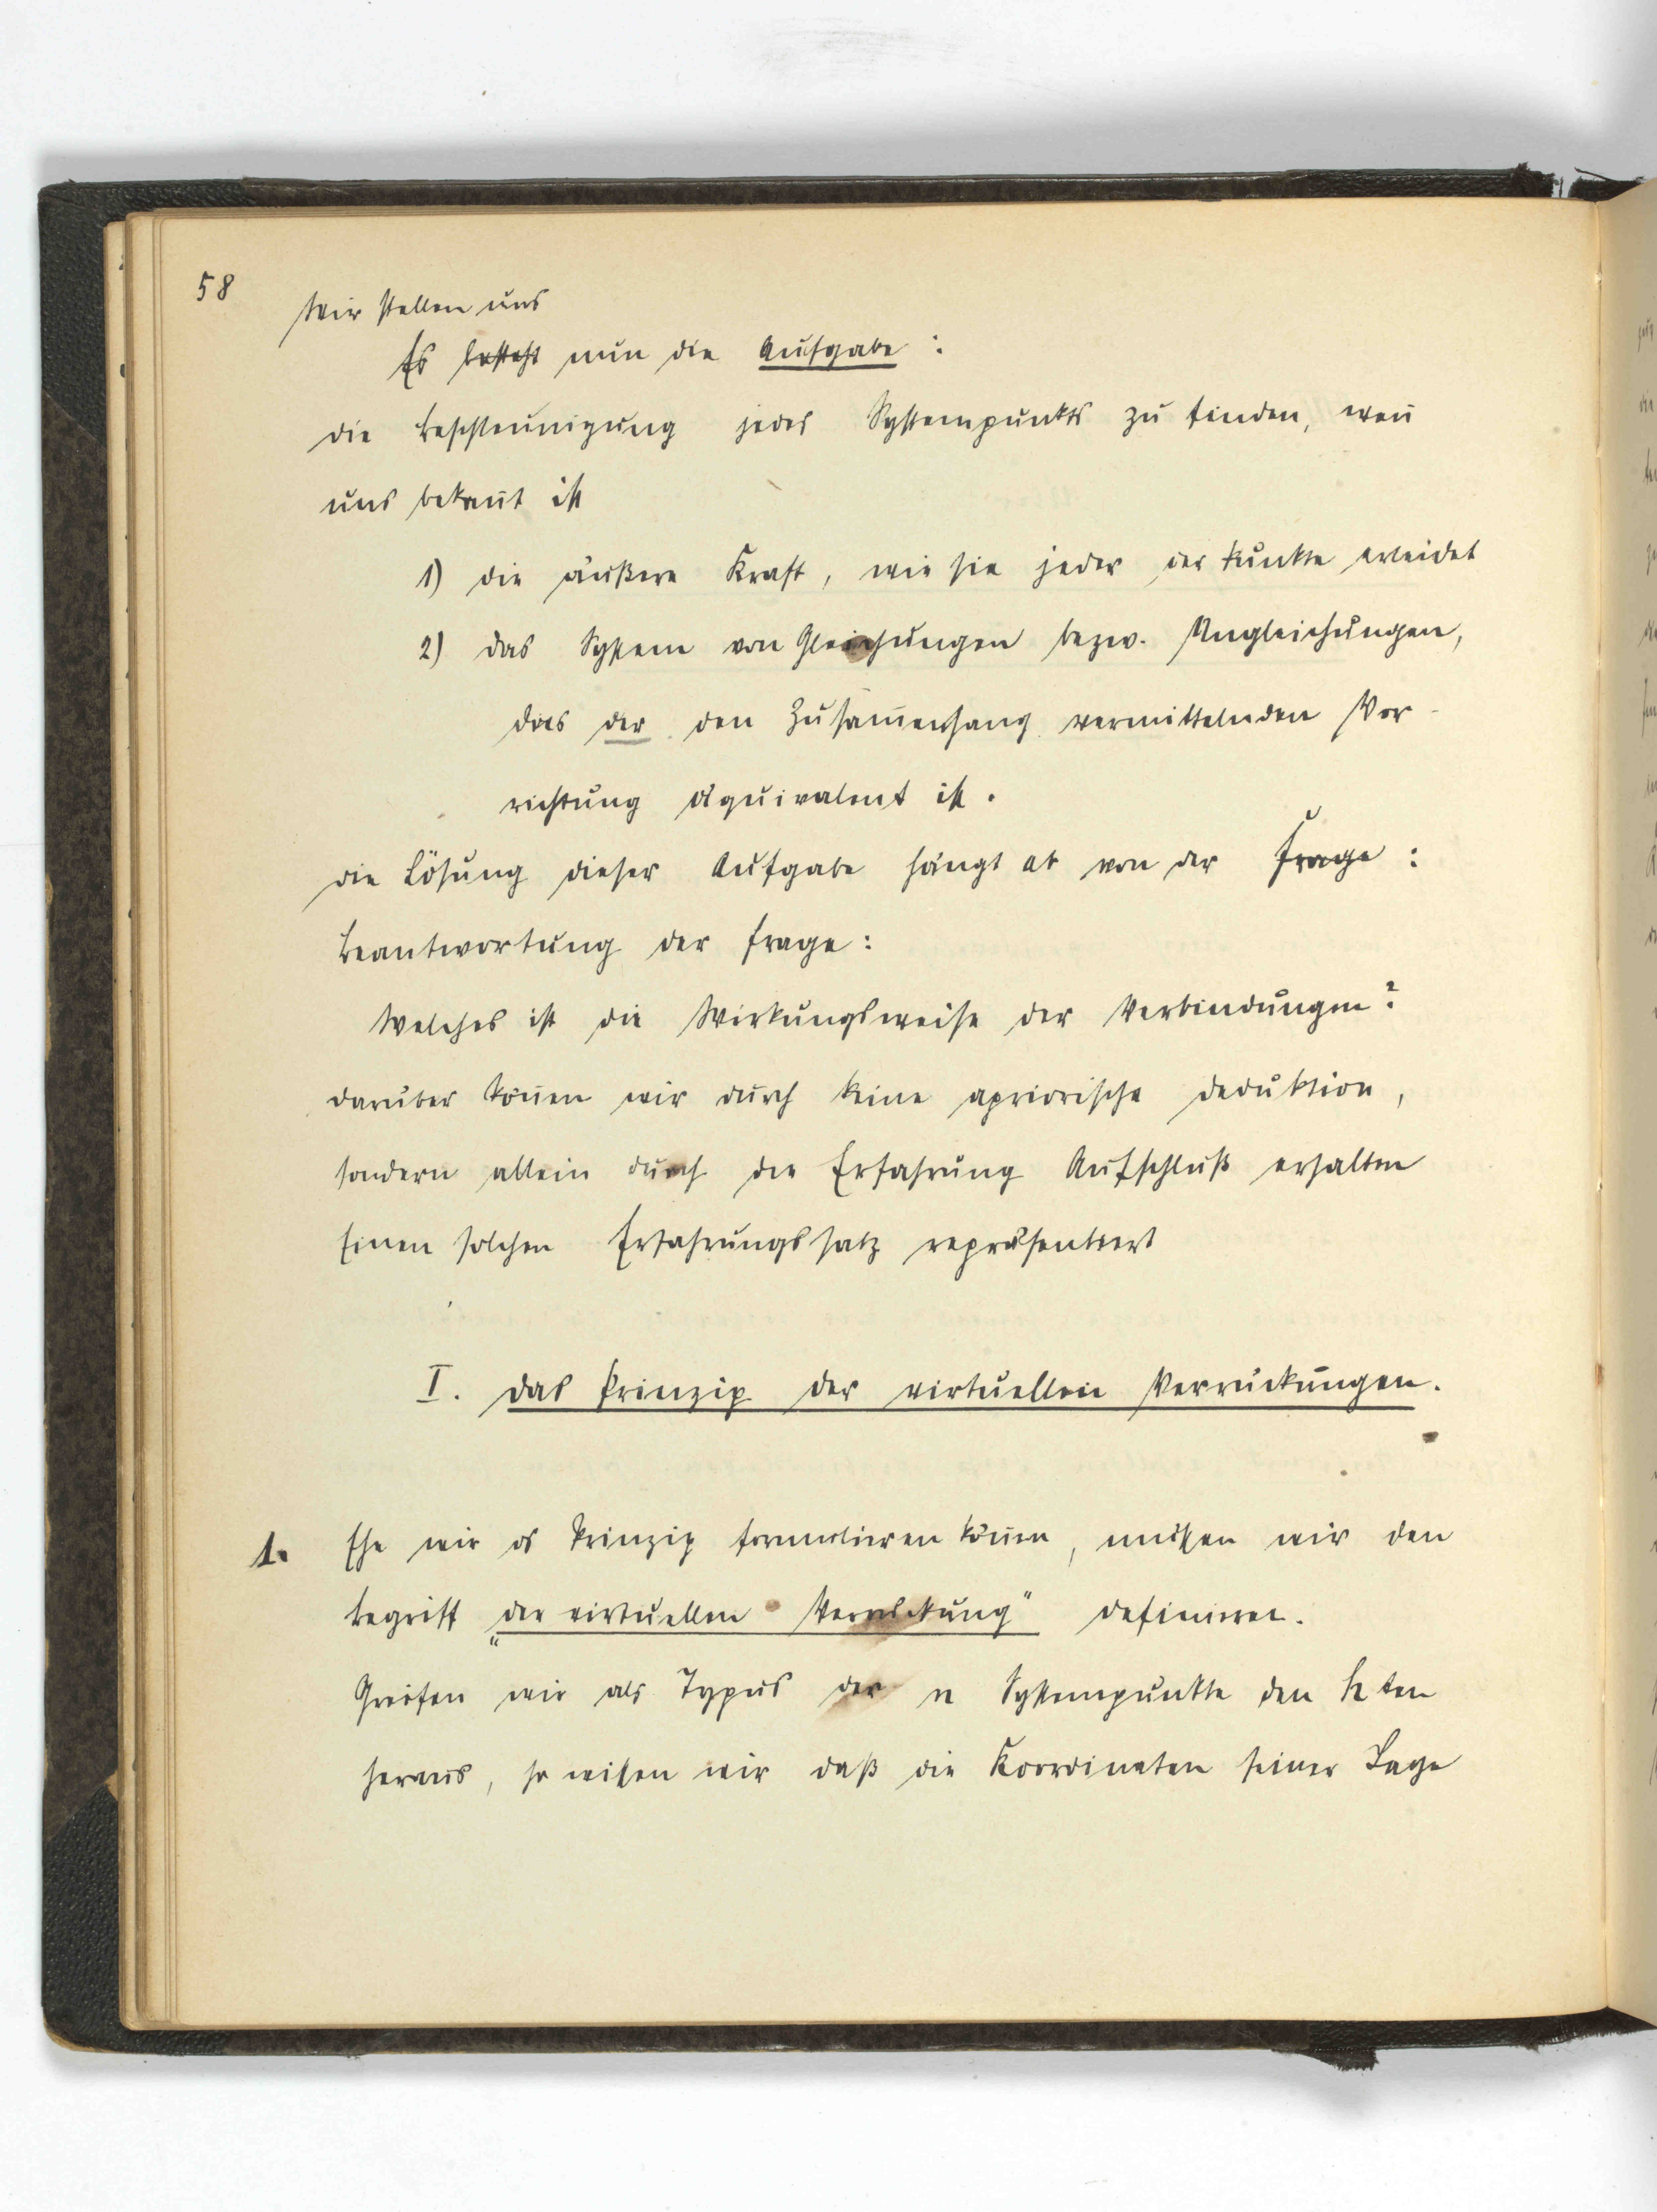 58
Wir stellen uns
Es besteht nun die Aufgabe:
die Beschleunigung jedes Systempunkts zu finden, weñ
uns bekañt ist
1) die äußere Kraft, wie sie jeder der Punkte erleidet
2) das System von Gleichungen bezw. Ungleichungen,
das der den Zusam̄enhang vermittelnden Vor-
richtung äquivalent ist.
die Lösung dieser Aufgabe hängt ab von der Frage:
Beantwortung der Frage:
Welches ist die Wirkungsweise der Verbindungen?
darüber köñen wir durch keine apriorische Deduktion,
sondern allein durch die Erfahrung Aufschluß erhalten
Einen solchen Erfahrungssatz repräsentiert
I. Das Prinzip der virtuellen Verrückungen.
1. Ehe wir das Prinzip formulieren köñen, müßen wir den
Begriff „der virtuellen Verrückung" definieren.
Greifen wir als Typus der n Systempunkte den hten
heraus, so wißen wir daß die Koordinaten seiner Lage